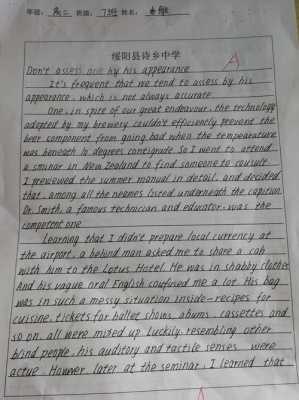 年级: 高二 班级: 7班 姓名:
绥阳县诗乡中学
A
Don't assess one by his appearance
It's frequent that we tend to assess by his
appearance, which is not always accurate.
One, in spite of our great endeavour, the technology
adopted by my brewery couldn't efficiently prevent the
beer component from going bad when the tempearature
was beneath 10 degrees centigrate. So I went to attend
a sminar in New Zealand to find someone to cousult.
I previewed the summer manual in detail, and decided
that, among all the neames listed underneath the capition
Dr. Smith, a famous technician and educator, was the
competent one.
Learning that I didn't prepare local currency at
the airport, a behind man asked me to share a cab
with him to the Lotus Hotel. He was in shabby clothes
And his vague oral English coufused me a lot. His bag
was in such a messy situation inside-recipes for
cuisine, tickets for ballet shows, abums, cassettes and
so on, all were mixed up. Luckily, resembling other
blind people, his auditory and tactile senses were
actue. However, later at the seminar, I learned that